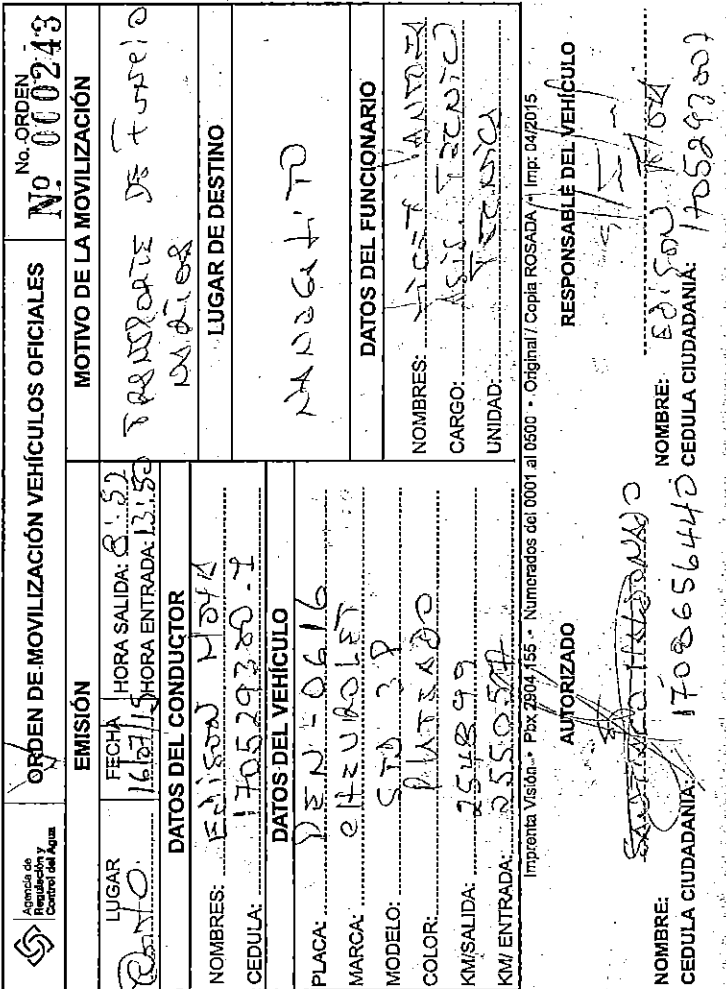 Agencia de
Regulación y
Control del Agua
ORDEN DE MOVILIZACIÓN VEHÍCULOS OFICIALES
No. ORDEN
Nº 000243
EMISIÓN
LUGAR
FECHA 16/07/15
HORA SALIDA: 8:52
HORA ENTRADA: 13:50
DATOS DEL CONDUCTOR
NOMBRES: EDISON MOYA
CEDULA: 170529380-1
DATOS DEL VEHÍCULO
PLACA: PEN-0616
MARCA: CHEVROLET
MODELO: STD 3P
COLOR: PLATEADO
KM/SALIDA: 254899
KM/ ENTRADA: 255057
MOTIVO DE LA MOVILIZACIÓN
TRANSPORTE DE
LUGAR DE DESTINO
NANEGALITO
DATOS DEL FUNCIONARIO
NOMBRES:
CARGO: ASIS. TECNICO
UNIDAD: TECNICA
Imprenta Visión • Pbx 2904 155 • Numerados del 0001 al 0500 • Original / Copia ROSADA • Imp: 04/2015
AUTORIZADO
NOMBRE: SANTIAGO MALDONADO
CEDULA CIUDADANIA: 1708656440
RESPONSABLE DEL VEHÍCULO
NOMBRE: EDISON MOYA
CEDULA CIUDADANIA: